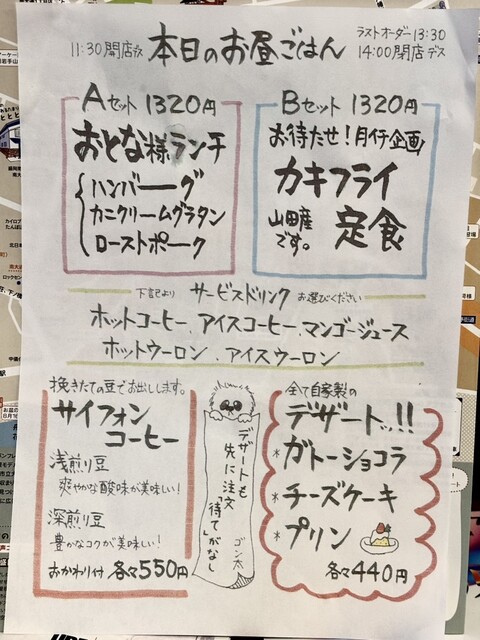 11:30 開店デス
本日のお昼ごはん
ラストオーダー13:30
14:00閉店デス
Aセット 1320円
おとな様ランチ
ハンバーグ
カニクリームグラタン
ローストポーク
Bセット 1320円
お待たせ!月イチ企画
カキフライ
山田産です。
定食
下記より サービスドリンク お選びください
ホットコーヒー、アイスコーヒー、マンゴージュース
ホットウーロン、アイスウーロン
挽きたての豆でお出しします。
サイフォン
コーヒー
浅煎り豆
爽やかな酸味が美味しい!
深煎り豆
豊かなコクが美味しい!
おかわり付 各々550円
デザートも
先に注文
「待て」がなし
ゴン太
全て自家製の
デザートッ!!
*ガトーショコラ
*チーズケーキ
*プリン
各々440円